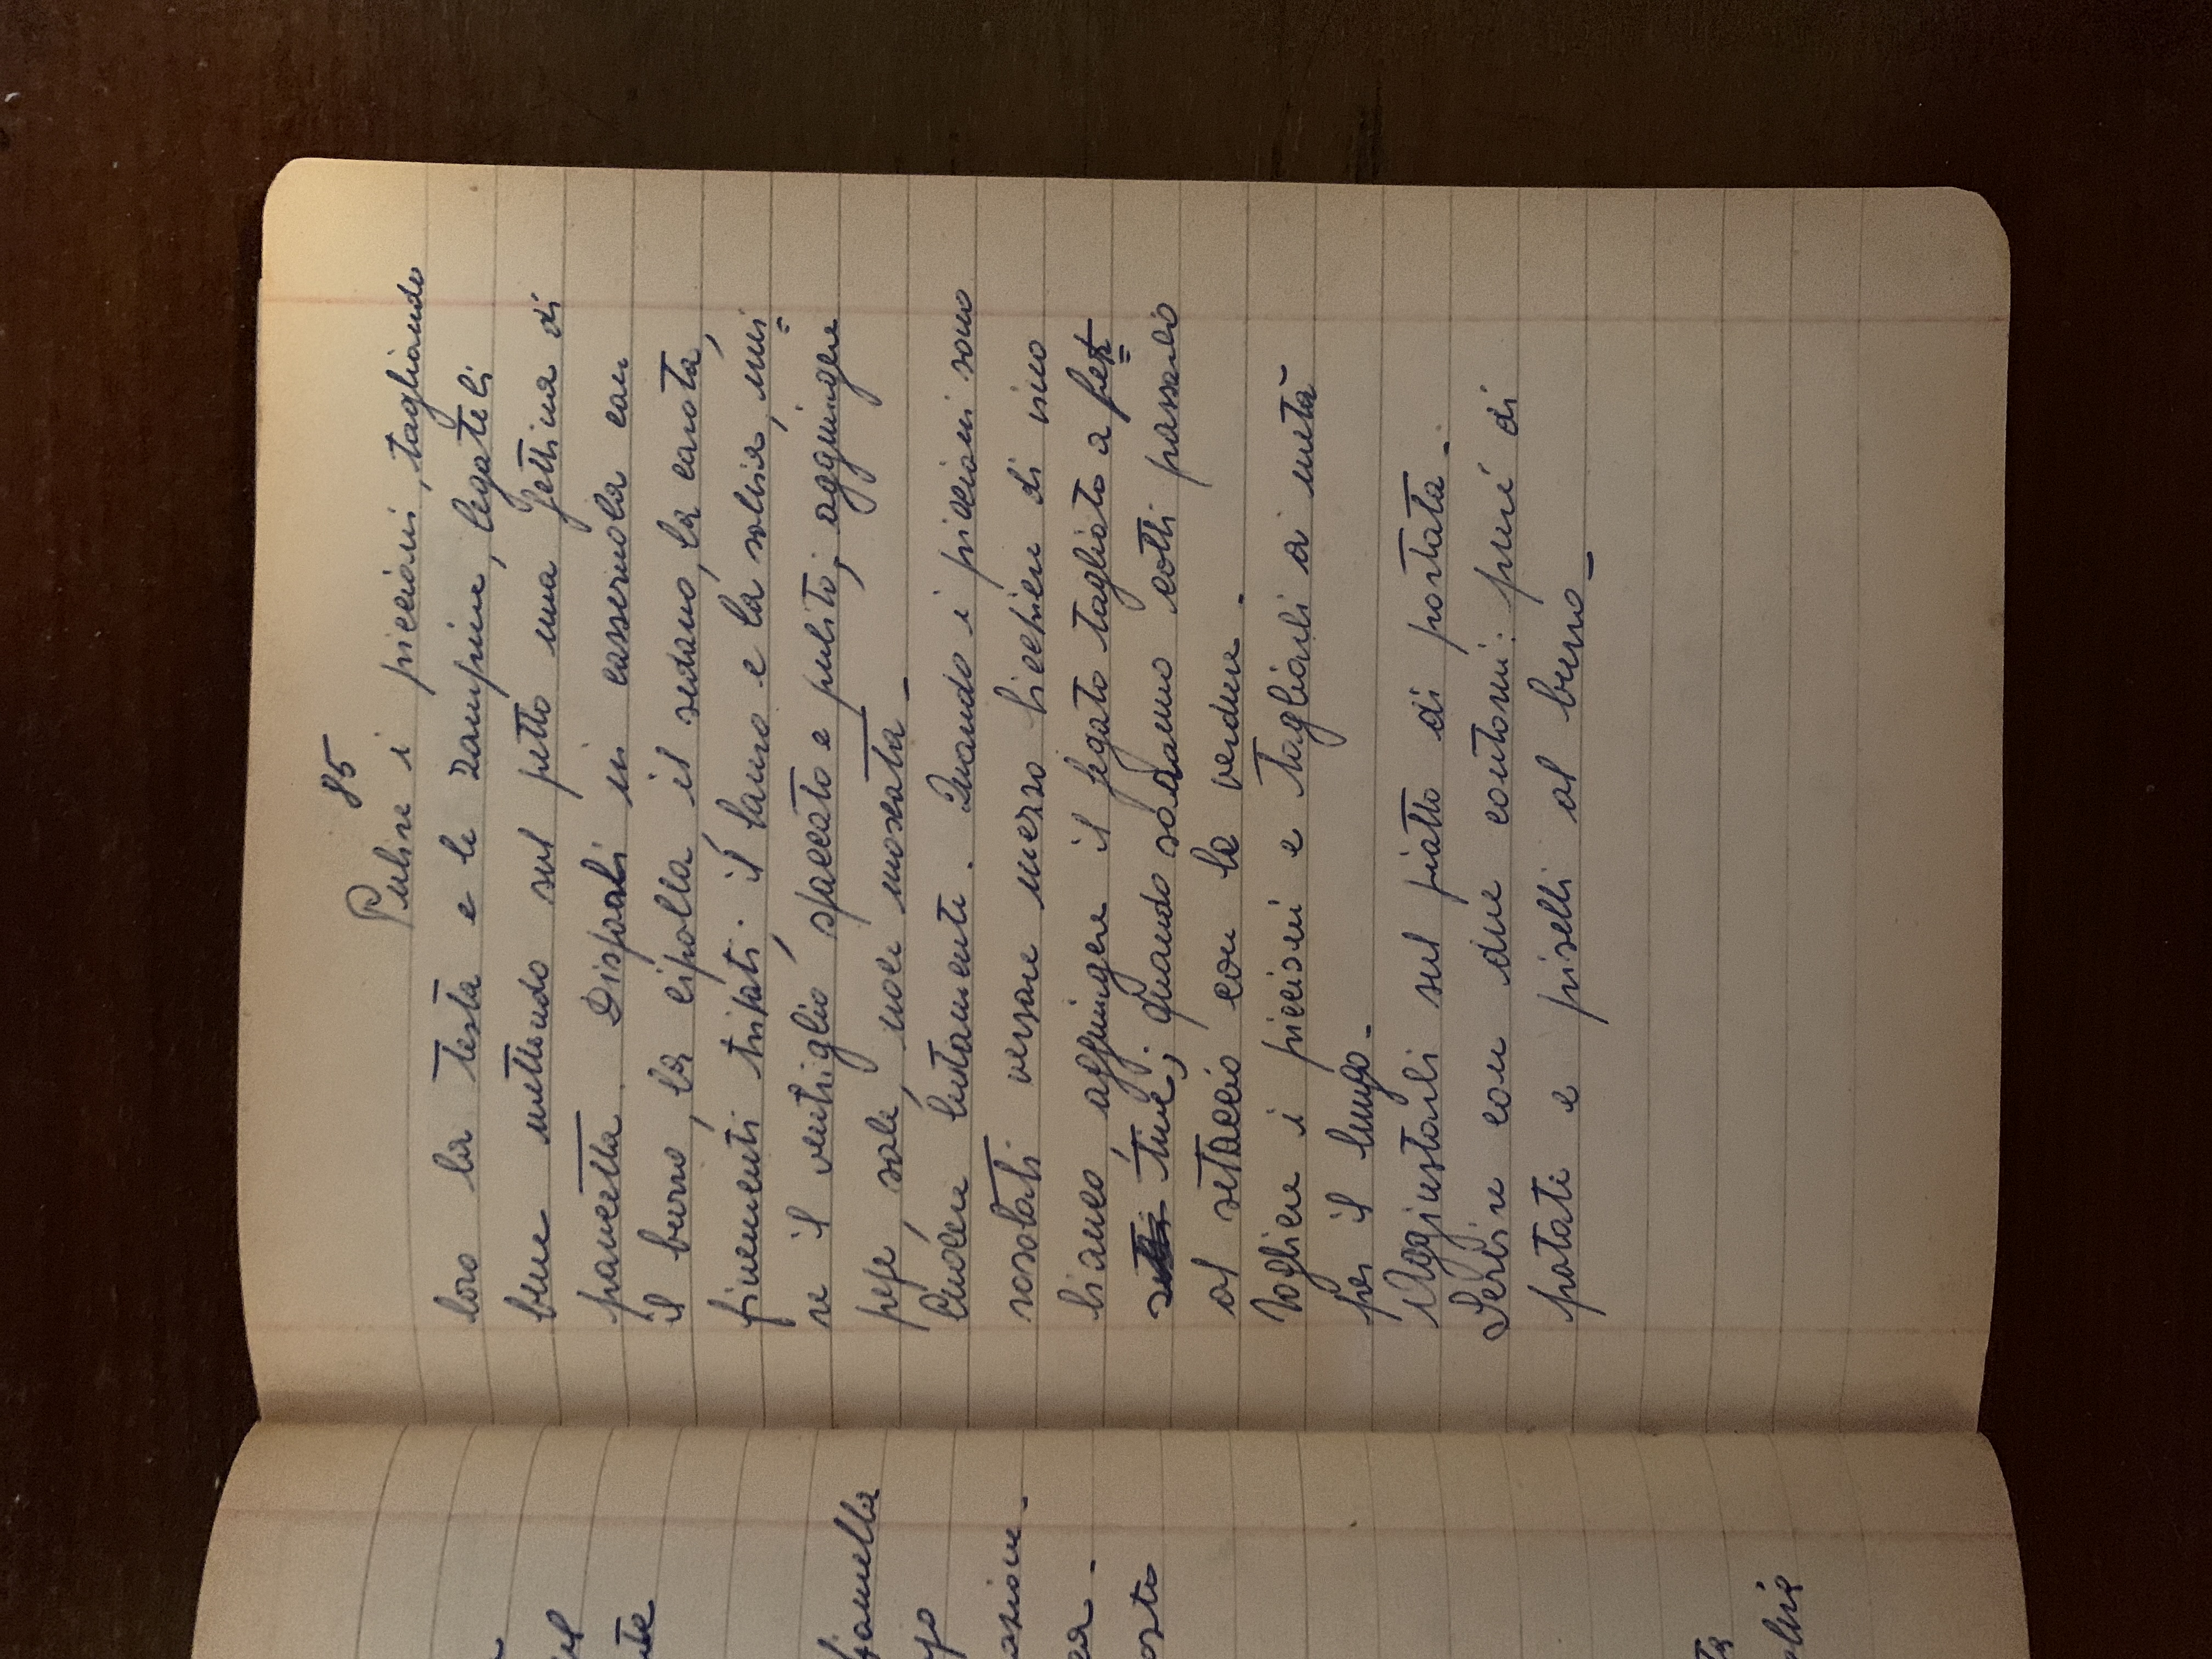 85
Pulire i piccioni, tagliando
loro la testa e le zampine, legateli
bene mettendo sul petto una fettina di
pancetta. Disporli in casseruola con
il burro, la cipolla, il sedano, la carota,
finementi tritati; il lauro e la salvia, uni=
re il ventriglio spaccato e pulito; aggiungere
pepe, sale, noce moscata -
Cuocere lentamente. Quando i piccioni sono
rosolati versare mezzo bicchiere di vino
bianco, aggiungere il fegato tagliato a fet=
tine; quando saranno cotti passarlo
al setaccio con le verdure -
Togliere i piccioni e tagliarli a metà
per il lungo -
Aggiustarli sul piatto di portata -
Servire con due contorni: puré di
patate e piselli al burro -
amella
azione -